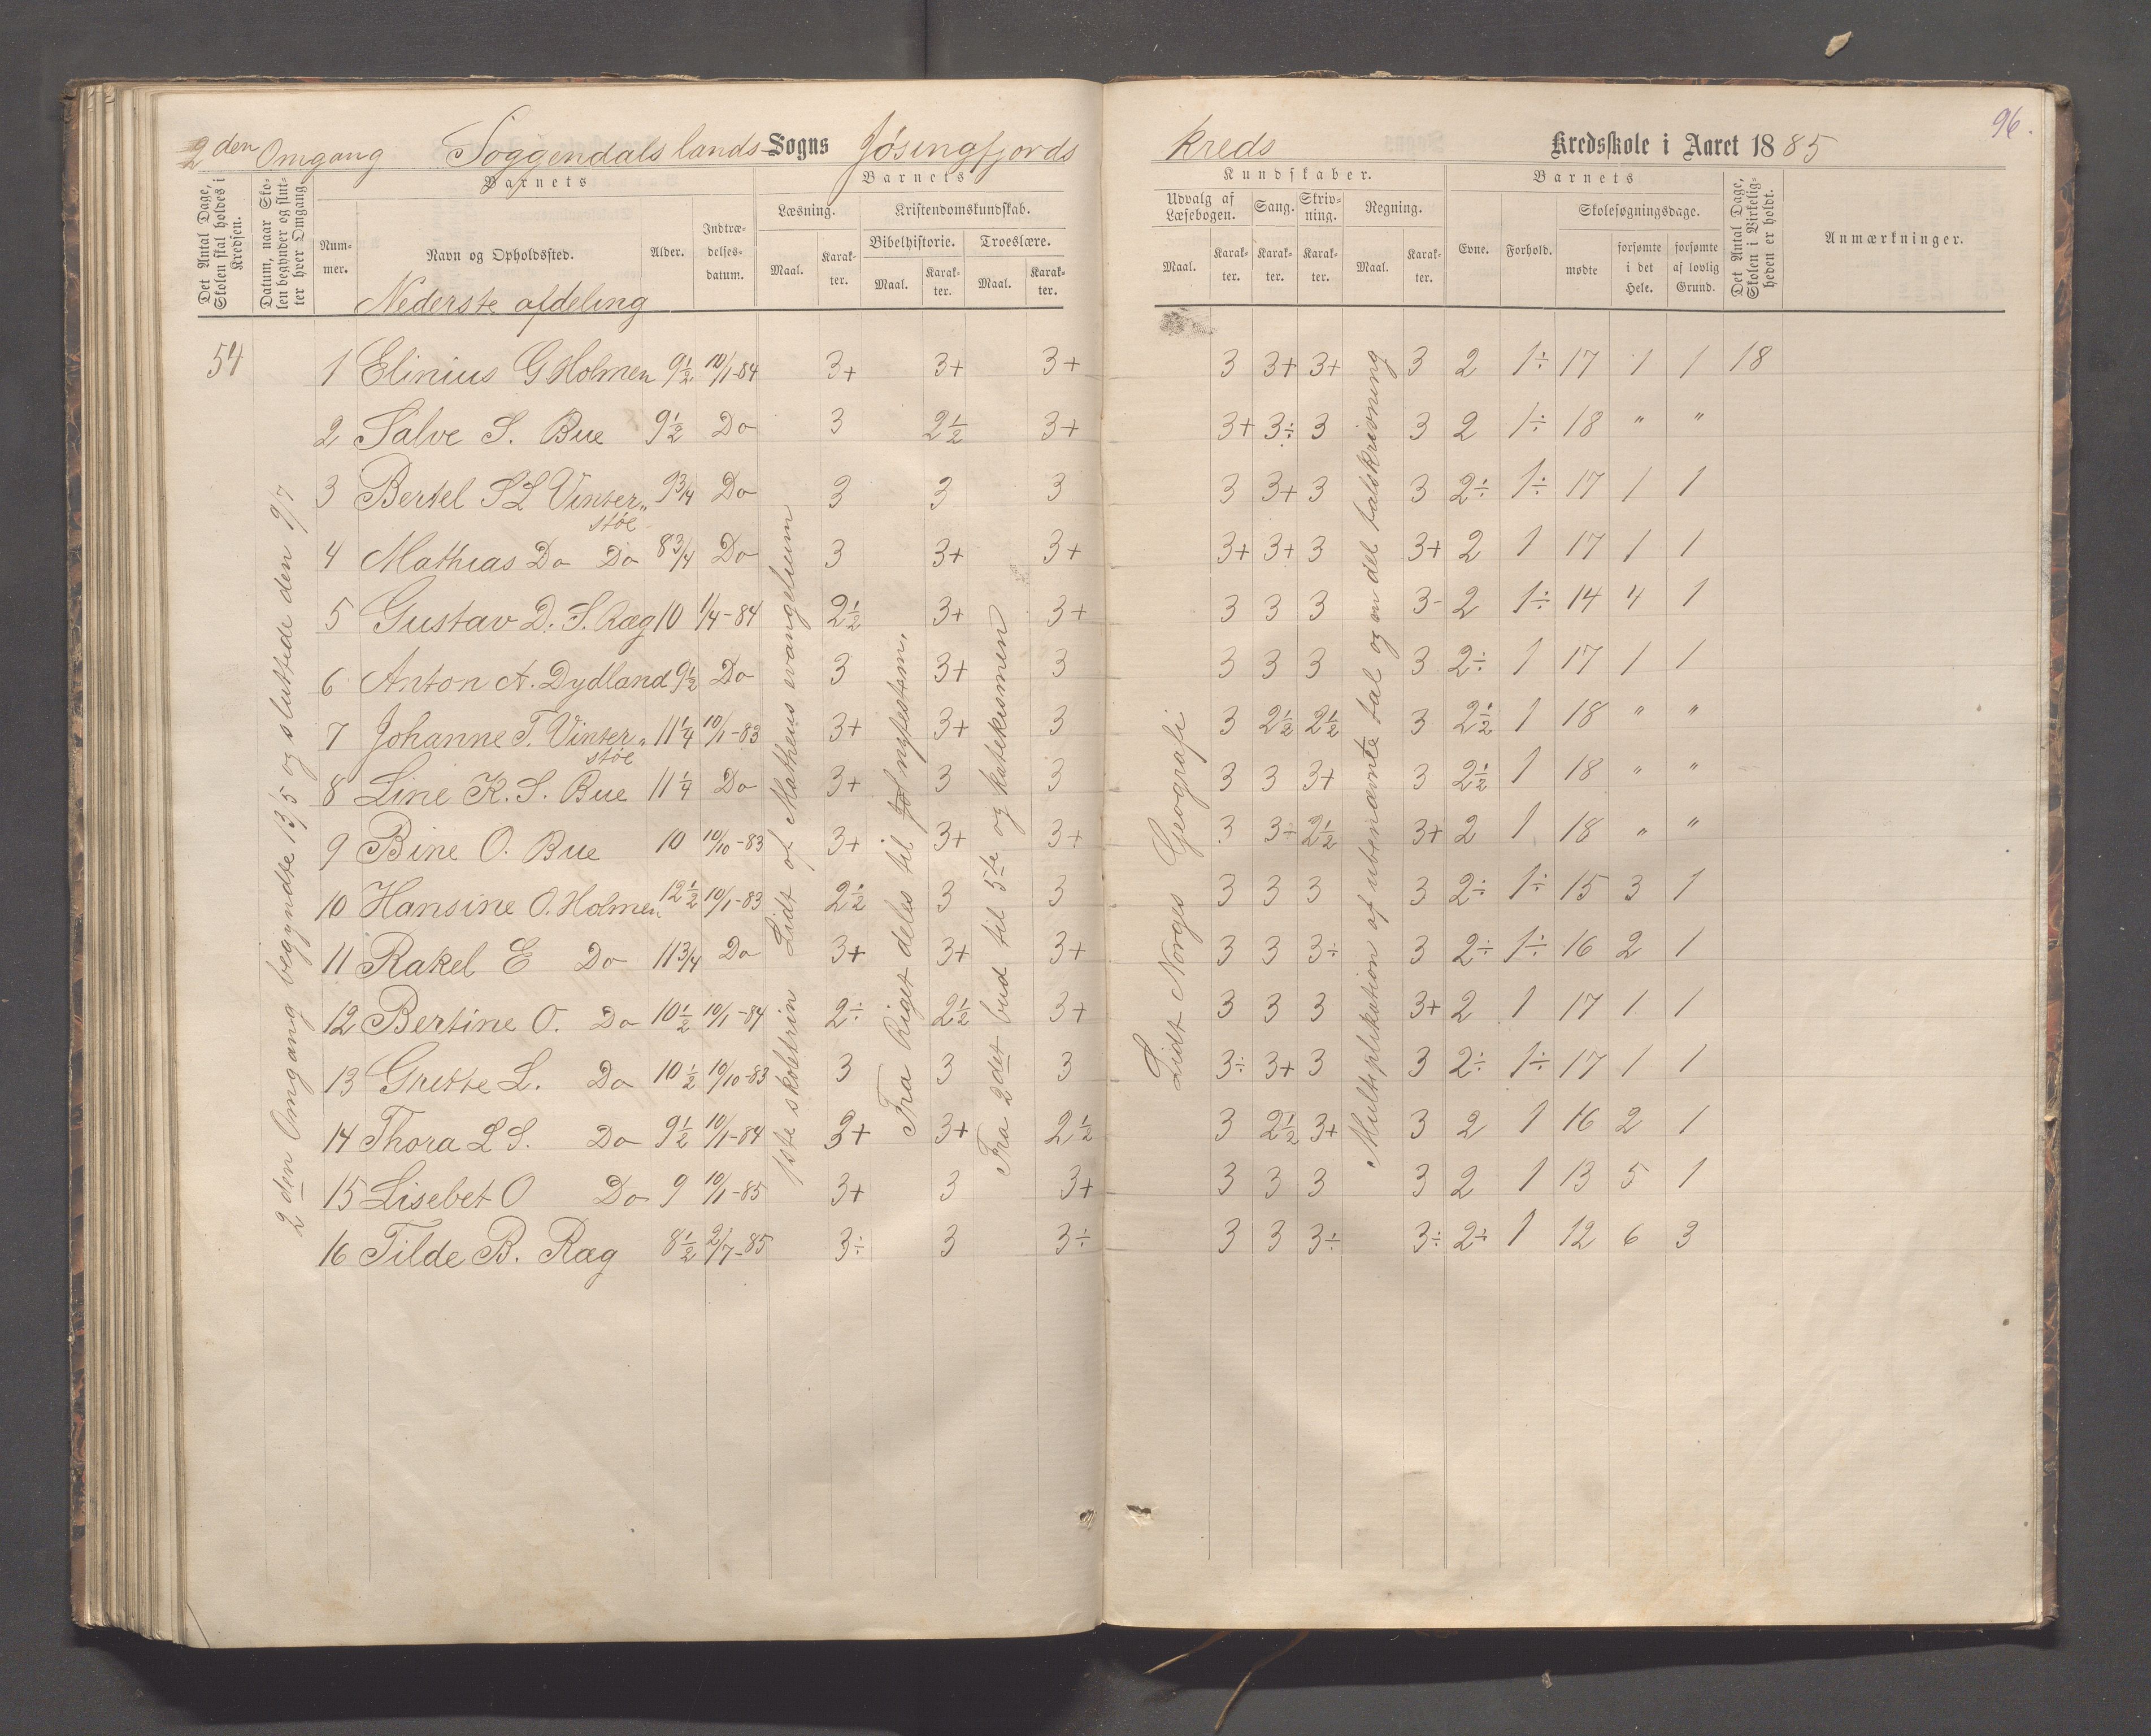 96.
2den Omgang Soggendals lands-Sogns Jösingfjords kreds Kredsskole i Aaret 1885
Det Antal Dage, Skolen skal holdes i Kredsen.
Datum, naar Skolen begynder og slutter hver Omgang.
Barnets Barnets Kundskaber. Barnets
Nummer. Navn og Opholdssted. Alder. Indtrædelsesdatum.
Læsning. Maal. Karakter.
Kristendomskundskab. Bibelhistorie. Maal. Karakter. Troeslære. Maal. Karakter.
Udvalg af Læsebogen. Maal. Karakter. Sang. Karakter. Skrivning. Karakter. Regning. Maal. Karakter.
Evne. Forhold. Skolesøgningsdage. mødte forsømte i det Hele. forsømte af lovlig Grund.
Det Antal Dage, Skolen i Virkeligheden er holdt.
Anmærkninger.
Nederste afdeling
54 1 Elinius G Holmen 9½ 10/1-84 3+ 3+ 3+ 3 3+ 3+ 3 2 1÷ 17 1 1 18
2 Salve S. Bue 9½ Do 3 2½ 3+ 3+ 3÷ 3 3 2 1÷ 18 " "
3 Bertel S L Vinter„ støe 9¾ Do 3 3 3 3 3+ 3 3 2÷ 1÷ 17 1 1
4 Mathias Do Do 8¾ Do 3 3+ 3+ 3+ 3+ 3 3+ 2 1 17 1 1
5 Gustav D. S. Ræg 10 1/4-84 2½ 3+ 3+ 3 3 3 3- 2 1÷ 14 4 1
6 Anton A. Dydland 9½ Do 3 3+ 3 3 3 3 3 2÷ 1 17 1 1
7 Johanne T. Vinter„ støe 11¼ 10/1-83 3+ 3+ 3 3 2½ 2½ 3 2½ 1 18 " "
8 Line K. S. Bue 11¼ Do 3+ 3 3 3 3 3+ 3 2½ 1 18 " "
9 Bine O. Bue 10 10/10-83 3+ 3+ 3+ 3 3÷ 2½ 3+ 2 1 18 " "
10 Hansine O. Holmen 12½ 10/1-83 2½ 3 3 3 3 3 3 2÷ 1÷ 15 3 1
11 Rakel E Do 11¾ Do 3+ 3+ 3+ 3 3 3÷ 3 2÷ 1÷ 16 2 1
12 Bertine O. Do 10½ 10/1-84 2÷ 2½ 3+ 3 3 3 3+ 2 1 17 1 1
13 Gritte L. Do 10½ 10/10-83 3 3 3 3÷ 3+ 3 3 2÷ 1÷ 17 1 1
14 Thora L S. Do 9½ 10/1-84 3+ 3+ 2½ 3 2½ 3+ 3 2 1 16 2 1
15 Lisebet O Do 9 10/1-85 3+ 3 3+ 3 3 3 3 2 1 13 5 1
16 Tilde B. Ræg 8½ 2/7-85 3÷ 3 3÷ 3 3 3÷ 3÷ 2÷ 1 12 6 3
2den Omgang begyndte 13/5 og sluttede den 9/7
1ste skoletrin Lidt af Matheus evangelium
Fra Riget deles til nyfestam.
Fra 2det bud til 5te og katekismen
Lidt Norges Geografi
Multiplikation af ubenævnte tal og en del talskrivning